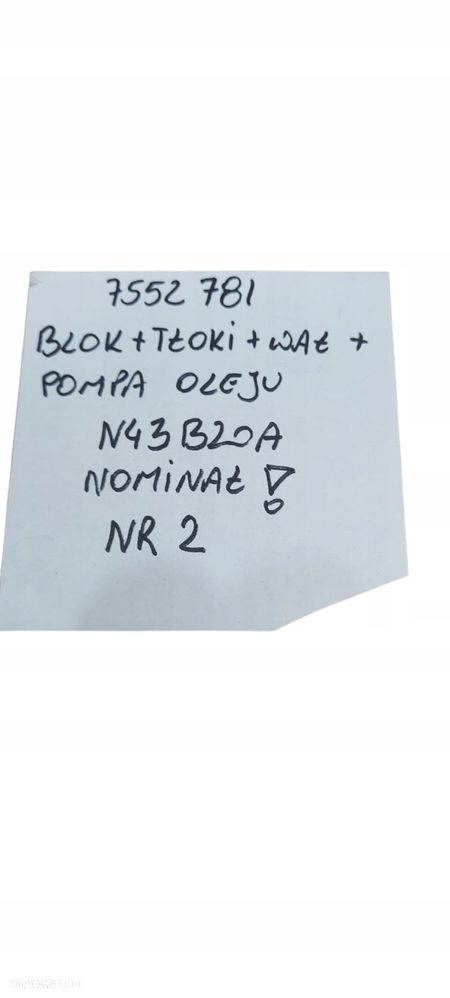 7552 781
BLOK + TŁOKI + WAŁ +
POMPA OLEJU
N43B20A
NOMINAŁ !
NR 2